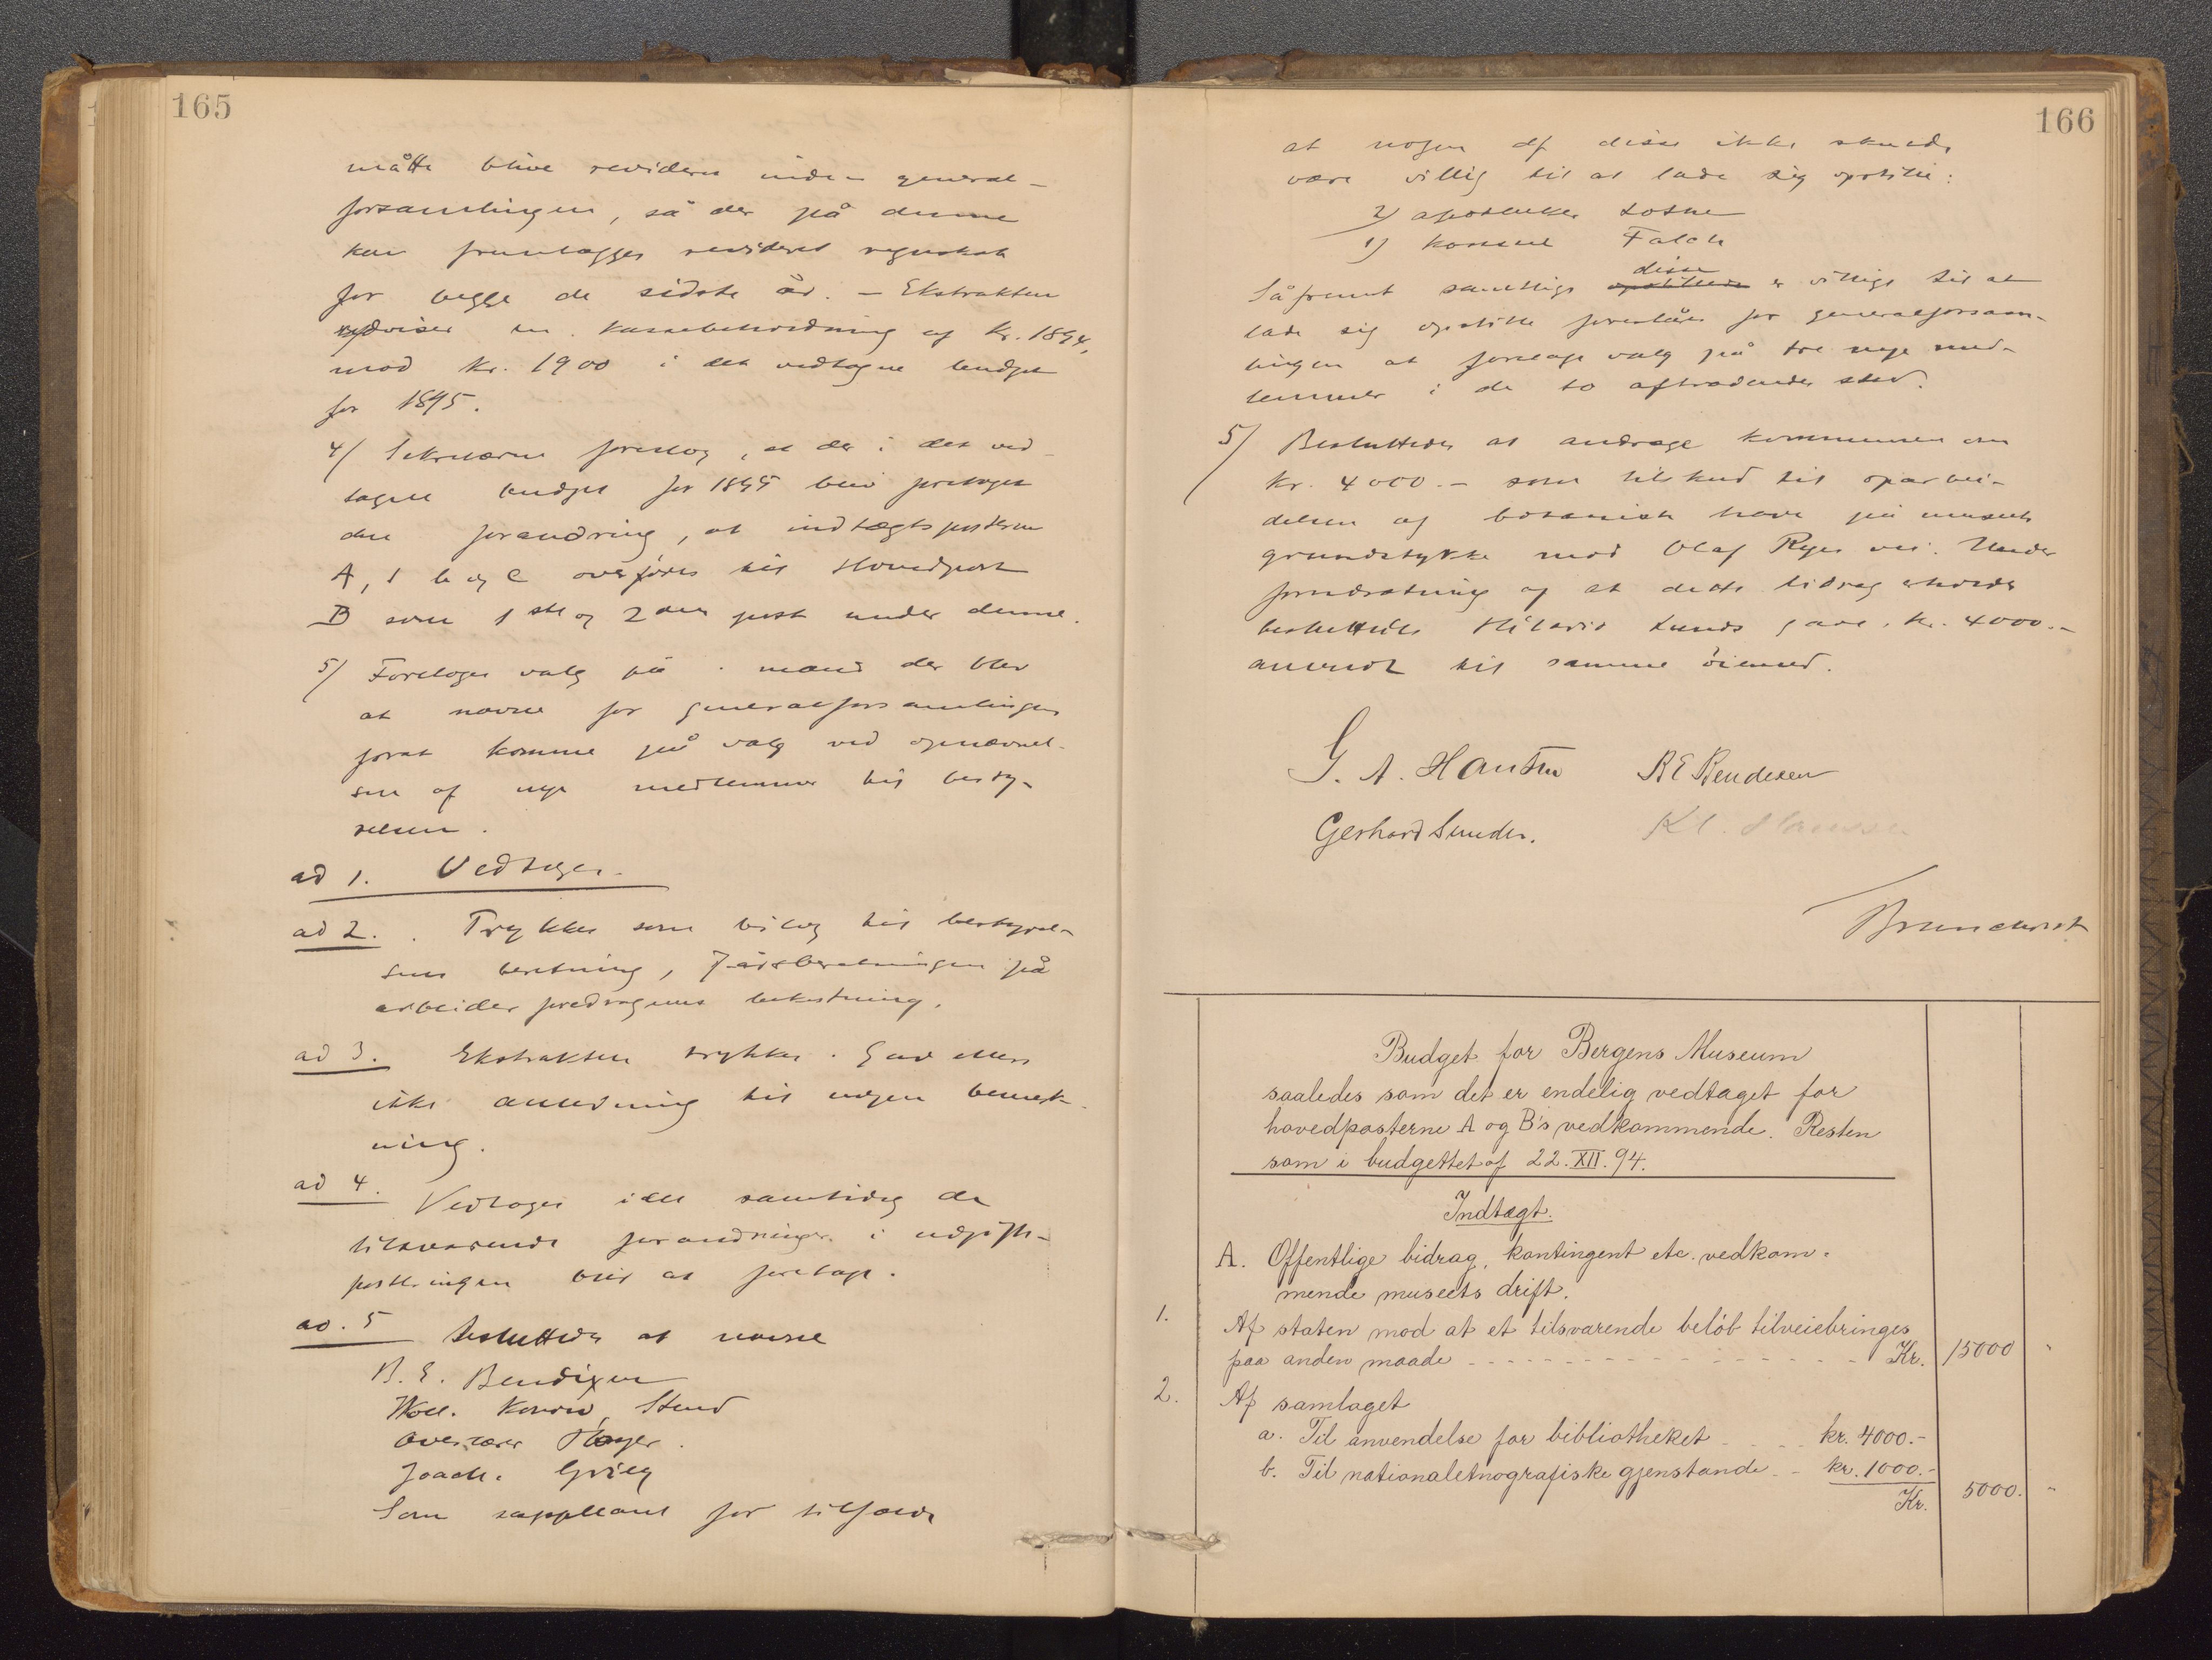 165
måtte blive revideret inden general-
forsamlingen, så der på denne
kan fremlægges revideret regnskab
for begge de sidste år. – Ekstrakten
udviser en kassebeholdning af kr. 1894,
mod kr. 1900 i det vedtagne budget
for 1895.
4/ Sekretæren foreslog, at der i det ved-
tagne budget for 1895 blev foretaget
den forandring, at indtægtsposterne
A, 1 b og c overføres til Hovedpost
B som 1ste og 2den post under denne.
5/ Foretoges valg på mænd der blev
at nævne for generalforsamlingen
forat komme på valg ved opnævnel-
sen af nye medlemmer til besty-
relsen.
ad 1. Vedtoges.
ad 2. Trykkes som bilag til bestyrel-
sens beretning, Årsberetningen på
arbeiderforedragenes bekostning.
ad 3. Ekstrakten trykkes. Gav ellers
ikke anledning til nogen bemærk-
ning.
ad 4. Vedtoges idet samtidig de
tilsvarende forandringer i udgifts-
posteringen blir at foretage.
ad. 5 besluttedes at nævne
B. E. Bendixen
Woll. Konow, Stend
Overlærer
Joach. Grieg
Som suppleant for tilfælde
166
at nogen af disse ikke skulde
være villig til at lade sig opstille:
2) apotheker Lothe
1) konsul Falck
disse
Såfremt samtlige opstillede er villige til at
lade sig opstille foreslåes for generalforsam-
lingen at foretage valg på tre nye med-
lemmer i de to aftrædendes sted.
5/ Besluttedes at andrage kommunen om
kr. 4000.– som tilskud til oparbei-
delsen af botanisk have på museets
grundstykke mod Olaf Ryes vei. Under
forudsætning af at dette bidrag erholdes
besluttedes Hilario Lunds gave, kr. 4000.–
anvendt til samme øiemed.
G. A. Hansen B E Bendixen
Gerhard Sunder. Kl. Hanssen
Brunchorst
Budget for Bergens Museum
saaledes som det er endelig vedtaget for
hovedposterne A og B's vedkommende. Resten
som i budgettet af 22.XII.94.
Indtægt.
A. Offentlige bidrag, kontingent etc. vedkom-
mende museets drift.
1. Af staten mod at et tilsvarende beløb tilveiebringes
paa anden maade - - - - - - - - Kr. 15000 "
2. Af samlaget
a. Til anvendelse for bibliotheket - - - kr. 4000.-
b. Til nationaletnografiske gjenstande - - kr. 1000.-
Kr. 5000. "